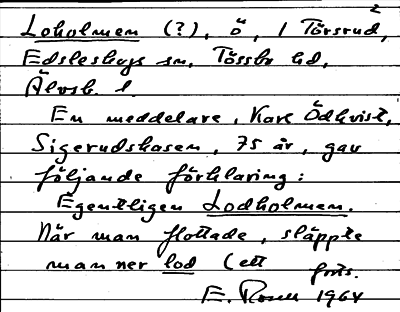 2
Loholmen (?), ö, i Törsrud,
Edsleskogs sn, Tössbo hd,
Älvsb. l.
En meddelare, Karl Ödkvist,
Sigerudskasen, 75 år, gav
följande förklaring:
Egentligen Lodholmen.
När man flottade, släppte
man ner lod (ett forts.
E. Rosell 1964